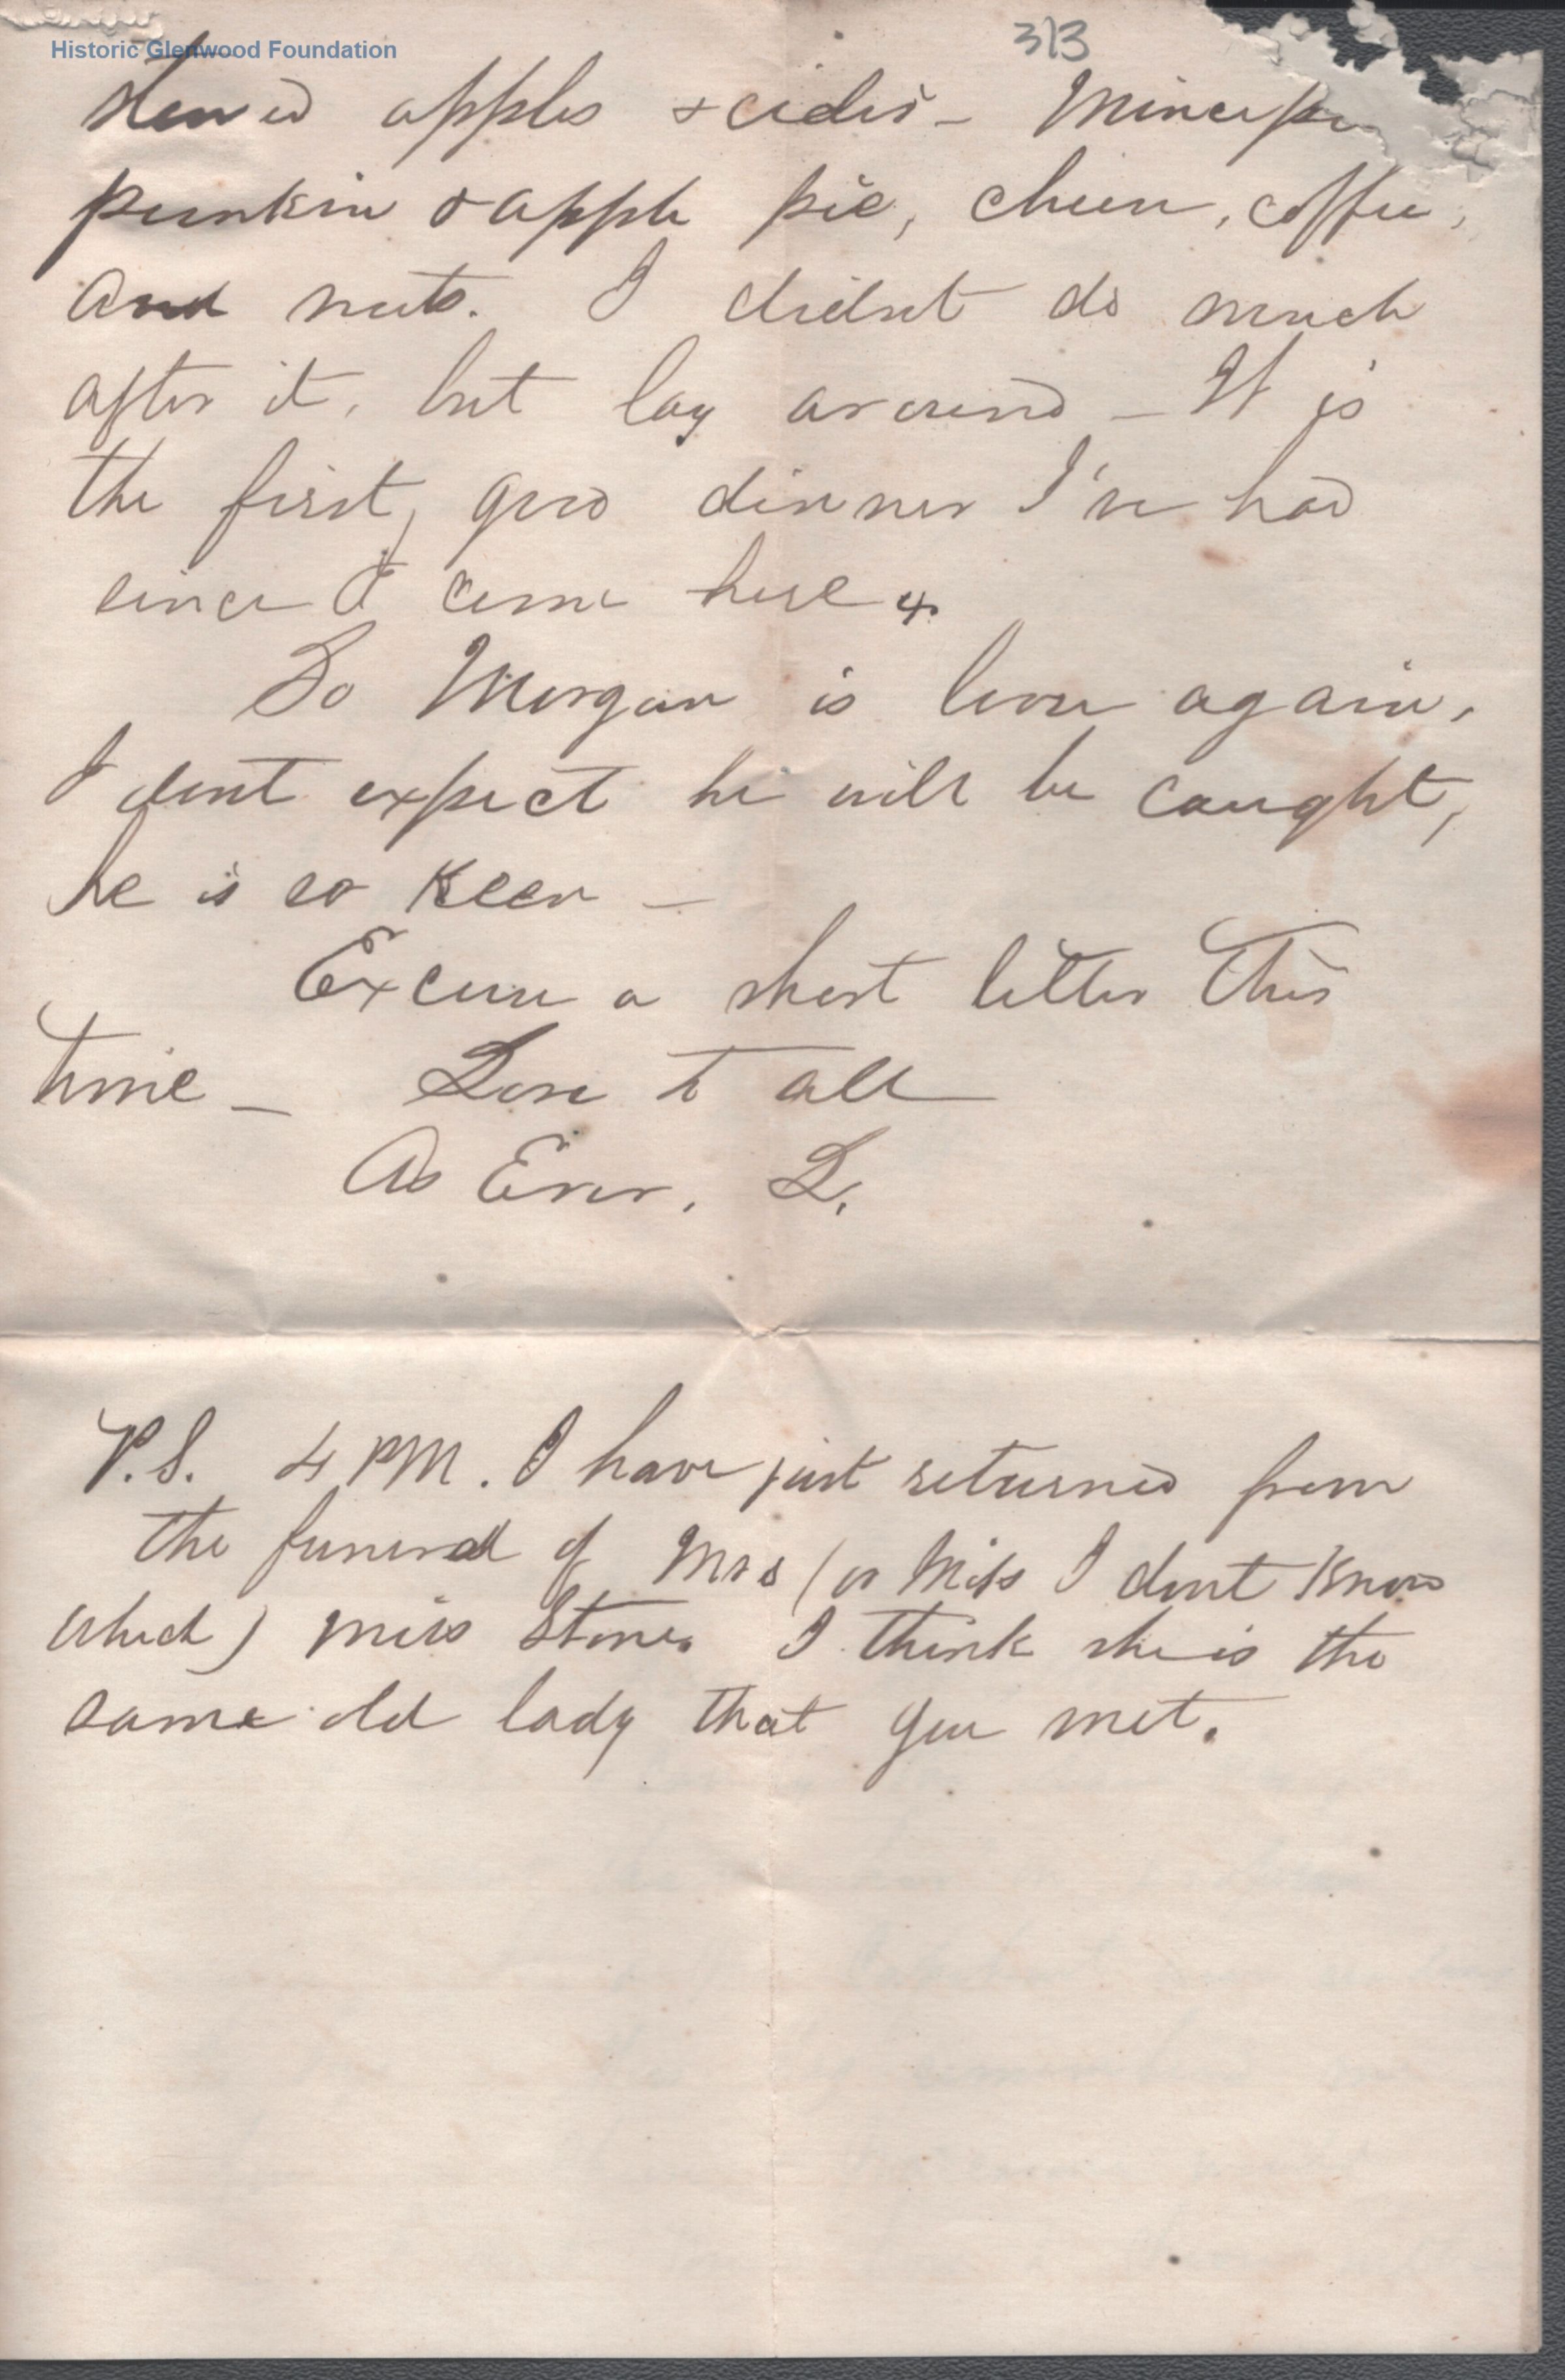 Historic Glenwood Foundation
313
stewed apples & cider – Mince
punkin & apple pie, cheese, coffee,
and nuts. I didnt do much
after it, but lay around – It is
the first, good dinner I've had
since I come here.
So Morgan is loose again,
I dont expect he will be caught,
he is so keen –
Excuse a short letter this
time – Love to all
As Ever, L.
P.S. 4 PM. I have just returned from
the funeral of Mrs (or Miss I dont know
which) miss Stone. I think she is the
same old lady that you met.